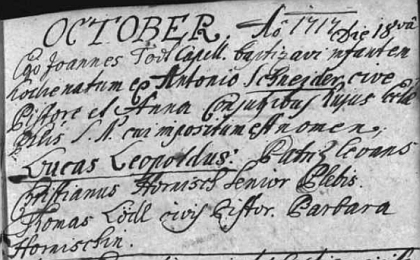 OCTOBER. Aõ 1717 Die 18vâ
Ego Joannes Todt Capell. baptizavi infantem
hodie natum ex Antonio Schneider, cive
Pistore et Anna Conjugibus hujus
S. M. cui impositum est nomen,
Lucas Leopoldus: Patr. levans
Christianus Hornisch Senior Plebis.
Thomas Lödl civis Pistor. Barbara
Hornischin.